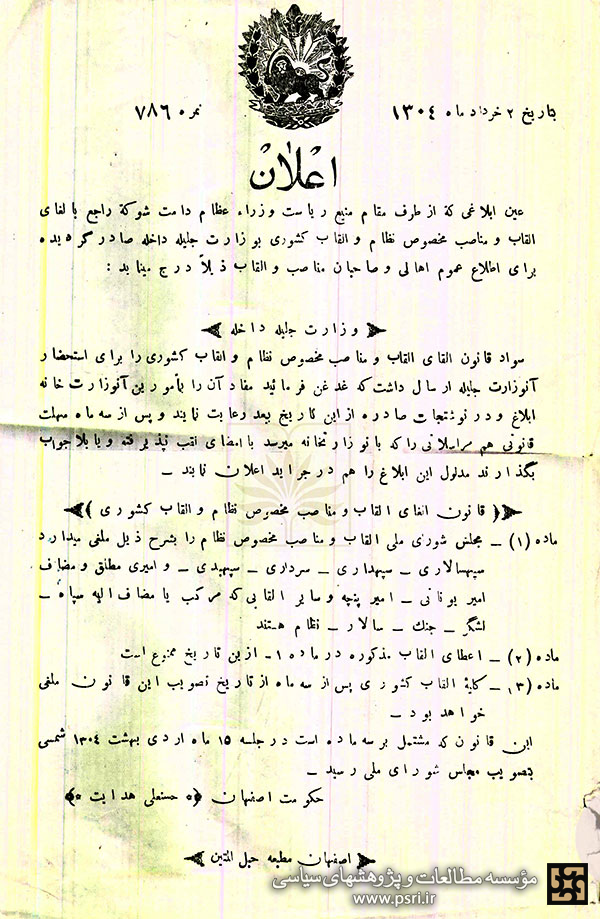 بتاریخ ۲ خرداد ماه ۱۳۰۴
نمره ۷۸۶
اعلان
عین ابلاغی که از طرف مقام منیع ریاست وزراء عظام دامت شوکة راجع بالغای
القاب و مناصب مخصوص نظام و القاب کشوری بوزارت جلیله داخله صادر گردیده
برای اطلاع عموم اهالی و صاحبان مناصب و القاب ذیلاً درج مینماید :
وزارت جلیله داخله
سواد قانون الغای القاب و مناصب مخصوص نظام و القاب کشوری را برای استحضار
آنوزارت جلیله ارسال داشت که غدغن فرمائید مفاد آن را بمأمورین آنوزارت خانه
ابلاغ و در نوشتجات صادره از این تاریخ ببعد رعایت نمایند و پس از سه ماه مهلت
قانونی هم مراسلاتی را که با نوزارتخانه میرسد با امضای لقب نپذیرفته و یا بلاجواب
بگذارند مدلول این ابلاغ را هم در جراید اعلان نمایند ــ
((قانون الغای القاب و مناصب مخصوص نظام و القاب کشوری))
ماده (۱) ــ مجلس شورای ملی القاب و مناصب مخصوص نظام را بشرح ذیل ملغی میدارد
سپهسالاری ــ سپهداری ــ سرداری ــ سپهبدی ــ و امیری مطلق و مضاف
امیر تومانی ــ امیر پنجه و سایر القابی که مرکب یا مضاف الیه سپاه ــ
لشگر ــ جنك ــ سالار ــ نظام هستند
ماده (۲) ــ اعطای القاب مذکوره در ماده ۱ ــ از این تاریخ ممنوع است
ماده (۳) ــ کلیهٔ القاب کشوری پس از سه ماه از تاریخ تصویب این قانون ملغی
خواهد بود ــ
این قانون که مشتمل بر سه ماده است در جلسه ۱۵ ماه اردی بهشت ۱۳۰۴ شمسی
بتصویب مجلس شورای ملی رسید ــ
حکومت اصفهان (* حسنعلی هدایت *)
اصفهان مطبعه حبل المتین
مؤسسه مطالعات و پژوهشهای سیاسی
www.psri.ir